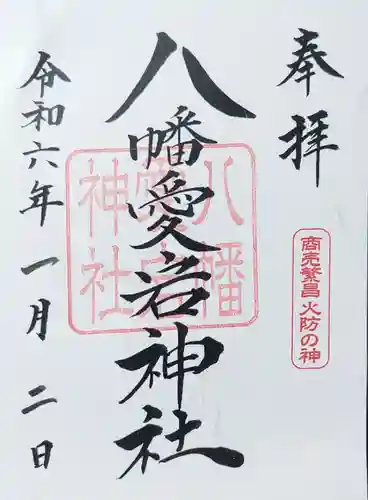 奉拝
商売繁昌 火防の神
八幡愛宕神社
八幡愛宕神社
令和六年一月二日